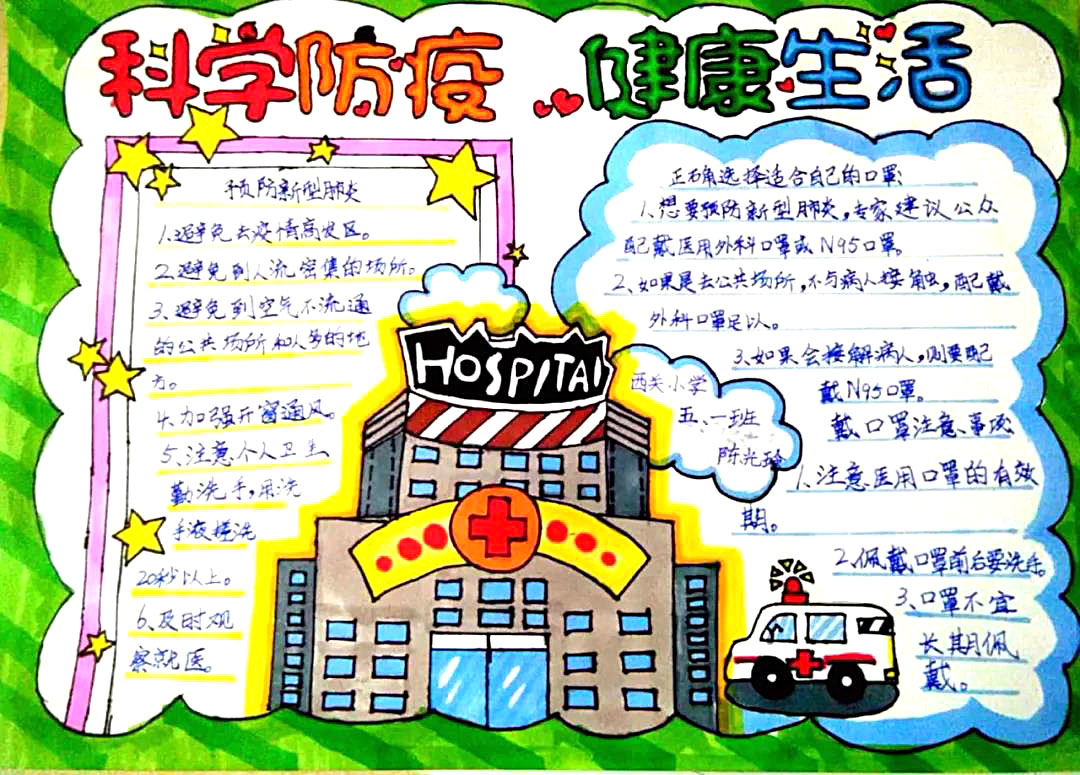 科学防疫 健康生活
预防新型肺炎
1.避免去疫情高发区。
2.避免到人流密集的场所。
3、避免到空气不流通
的公共场所和人多的地
方。
4.加强开窗通风。
5、注意个人卫生
勤洗手,用洗
手液搓洗
20秒以上。
6、及时观
察就医。
HOSPITAL
西关小学
五、一班
陈光玲
正确选择适合自己的口罩:
1.想要预防新型肺炎,专家建议公众
配戴医用外科口罩或N95口罩。
2、如果是去公共场所,不与病人接触,配戴
外科口罩足以。
3、如果会接解病人,则要配
戴N95口罩。
戴口罩注意事项
1、注意医用口罩的有效
期。
2、佩戴口罩前后要洗手。
3、口罩不宜
长期佩
戴。